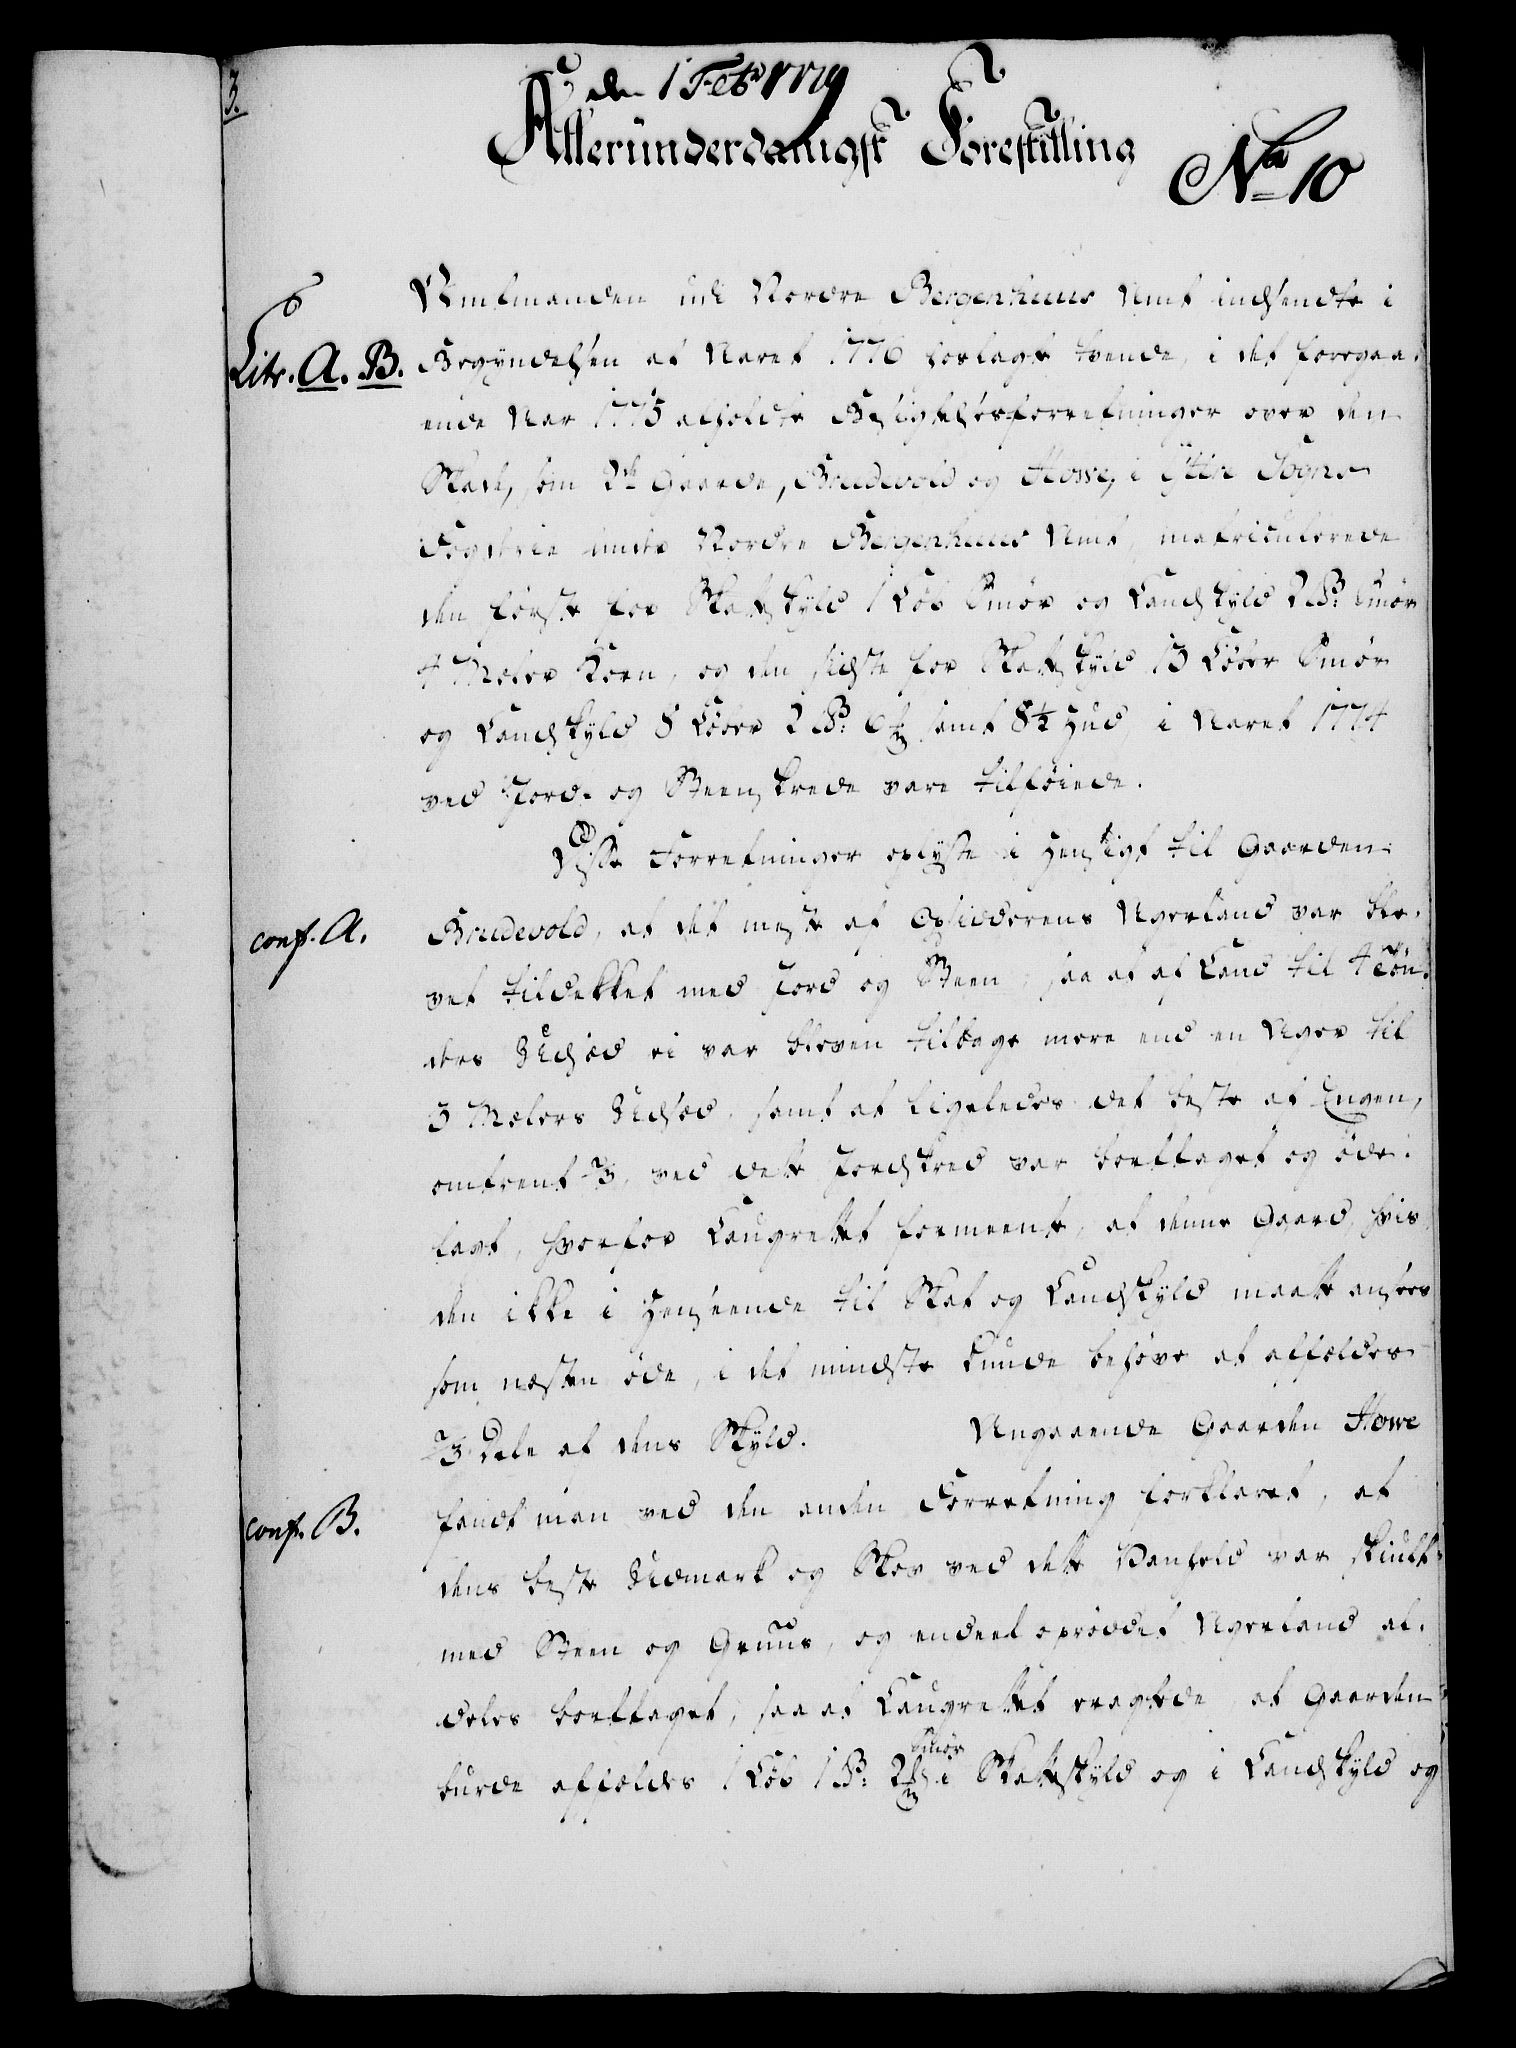 3.
den 1 Febr 1779
Alleründerdanigst Forestilling
No 10
Amtmanden udi Nordre Bergenhuus Amt indsendte i
Litr. A. B.
Begyndelsen af Aaret 1776 forlagt tvende, i det foregaa-
ende Aar 1775 afholdte Besigtelsesforretninger over den
Skade, som 2de Gaarde, Brudevold og Howe, i Yttre Sogns
Fogderie under Nordre Bergenhuus Amt, matriculerede
den første for Skattskyld 1 Løb Smør og Landskyld 2 B: Smør
4 Mæler Korn, og den sidste for Skattskyld 13 Løber Smør
og Landskyld 8 Løber 2 B: 6 samt 8½ Hud i Aaret 1774
ved Jord- og Steenskrede vare tilføiede.
Disse Forretninger oplyste i Hensigt til Gaarden
conf. A.
Brudevold, at det meste af Opsidderens Agerland var ble-
vet tildekket med Jord og Steen, saa at af Land til 4 Tøn-
ders Udsæd ei var bleven tilbage mere end en Ager til
3 Mælers Udsæd, samt at ligeledes det beste af Engen,
omtrent 2/3, ved dette Jordskred var borttaget og øde-
lagt, hvorfor Laugrettet formeente, at denne Gaard, hvis
den ikke i Henseende til Skat og Landskyld maatte ansees
som næsten øde, i det mindste kunde behøve at affældes
2/3 Dele af dens Skyld. Angaaende Gaarden Howe
conf. B.
fandt man ved den anden Forretning forklaret, at
dens beste Udmark og Skov ved dette Vanheld var skiult
med Steen og Gruus, og endeel oprøddet Agerland al-
deles borttaget, saa at Laugrettet eragtede, at Gaarden
burde affældes 1 Løb 1 B: 2 Smør i Skattskyld og i Landskyld og